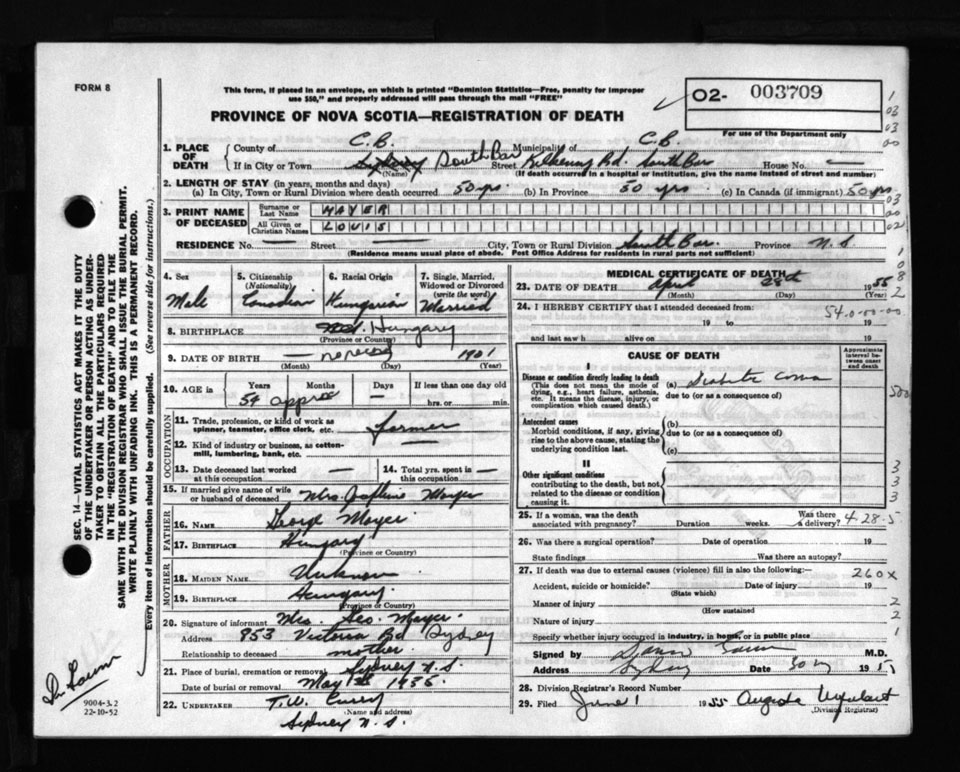 FORM 8
This form, if placed in an envelope, on which is printed "Dominion Statistics—Free, penalty for improper
use $50," and properly addressed will pass through the mail "FREE"
02- 003709
For use of the Department only
PROVINCE OF NOVA SCOTIA—REGISTRATION OF DEATH
1. PLACE OF DEATH
County of C.B. Municipality of C.B.
If in City or Town Sydney South Bar Street Kilkenny Rd. South Bar House No. —
(Name) (If death occurred in a hospital or institution, give the name instead of street and number)
2. LENGTH OF STAY (in years, months and days)
(a) In City, Town or Rural Division where death occurred 50 yrs. (b) In Province 50 yrs (c) In Canada (if immigrant) 50 yrs
3. PRINT NAME OF DECEASED
Surname or Last Name MAYER
All Given or Christian Names LOUIS
RESIDENCE No. — Street — City, Town or Rural Division South Bar. Province N.S.
(Residence means usual place of abode. Post Office Address for residents in rural parts not sufficient)
4. Sex Male
5. Citizenship (Nationality) Canadian
6. Racial Origin Hungarian
7. Single, Married, Widowed or Divorced (write the word) Married
8. BIRTHPLACE Hungary
(Province or Country)
9. DATE OF BIRTH — no record 1901
(Month) (Day) (Year)
10. AGE in Years Months Days If less than one day old
54 approx — hrs. or min.
OCCUPATION
11. Trade, profession, or kind of work as spinner, teamster, office clerk, etc. farmer
12. Kind of industry or business, as cotton-mill, lumbering, bank, etc. —
13. Date deceased last worked at this occupation —
14. Total yrs. spent in this occupation —
15. If married give name of wife or husband of deceased Mrs. Mayer
FATHER
16. NAME George Mayer
17. BIRTHPLACE Hungary
(Province or Country)
MOTHER
18. MAIDEN NAME Unknown
19. BIRTHPLACE Hungary.
(Province or Country)
20. Signature of informant Mrs. Geo. Mayer.
Address 953 Victoria Rd Sydney
Relationship to deceased mother
21. Place of burial, cremation or removal Sydney N.S.
Date of burial or removal May 1st
22. UNDERTAKER T.W. Curry
(Name and address)
Sydney N.S.
MEDICAL CERTIFICATE OF DEATH
23. DATE OF DEATH April 28th 1955
(Month) (Day) (Year)
24. I HEREBY CERTIFY that I attended deceased from:
54-0-00-00
19 to 19
and last saw h alive on 19
CAUSE OF DEATH
Approximate interval between onset and death
I
Disease or condition directly leading to death
(This does not mean the mode of dying, e.g., heart failure, asthenia, etc. It means the disease, injury, or complication which caused death.)
(a) Diabetic Coma
due to (or as a consequence of)
Antecedent causes
Morbid conditions, if any, giving rise to the above cause, stating the underlying condition last.
(b)
due to (or as a consequence of)
(c)
II
Other significant conditions
contributing to the death, but not related to the disease or condition causing it.
25. If a woman, was the death associated with pregnancy? Duration weeks. Was there a delivery? 4-28-5
26. Was there a surgical operation? Date of operation 19
State findings Was there an autopsy?
27. If death was due to external causes (violence) fill in also the following: 260X
Accident, suicide or homicide? Date of injury 19
(State which)
Manner of injury
(How sustained)
Nature of injury
Specify whether injury occurred in industry, in home, or in public place
Signed by M.D.
Address Sydney Date 30 195
28. Division Registrar's Record Number
29. Filed June 1 1955 Urquhart
(Division Registrar)
SEC. 14—VITAL STATISTICS ACT MAKES IT THE DUTY
OF THE UNDERTAKER OR PERSON ACTING AS UNDER-
TAKER TO OBTAIN ALL THE PARTICULARS REQUIRED
IN THE "REGISTRATION OF DEATH" AND TO FILE THE
SAME WITH THE DIVISION REGISTRAR WHO SHALL ISSUE THE BURIAL PERMIT.
WRITE PLAINLY WITH UNFADING INK. THIS IS A PERMANENT RECORD.
Every item of information should be carefully supplied. (See reverse side for instructions.)
9004-3.2
22-10-52